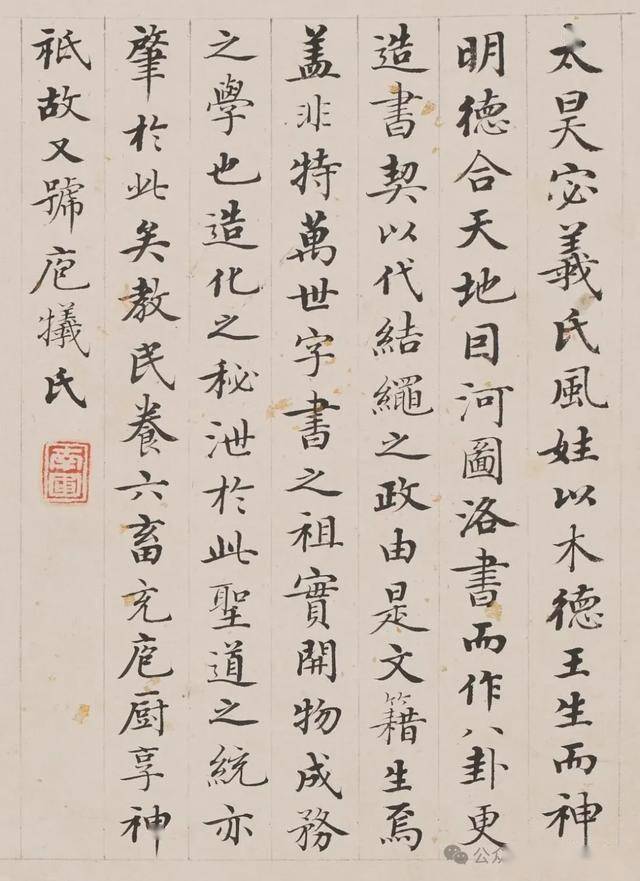 太昊宓羲氏風姓以木德王生而神
明德合天地因河圖洛書而作八卦更
造書契以代結繩之政由是文籍生焉
蓋非特萬世字書之祖實開物成務
之學也造化之秘泄於此聖道之統亦
肇於此矣教民養六畜充庖厨享神
祗故又號庖犧氏
公众